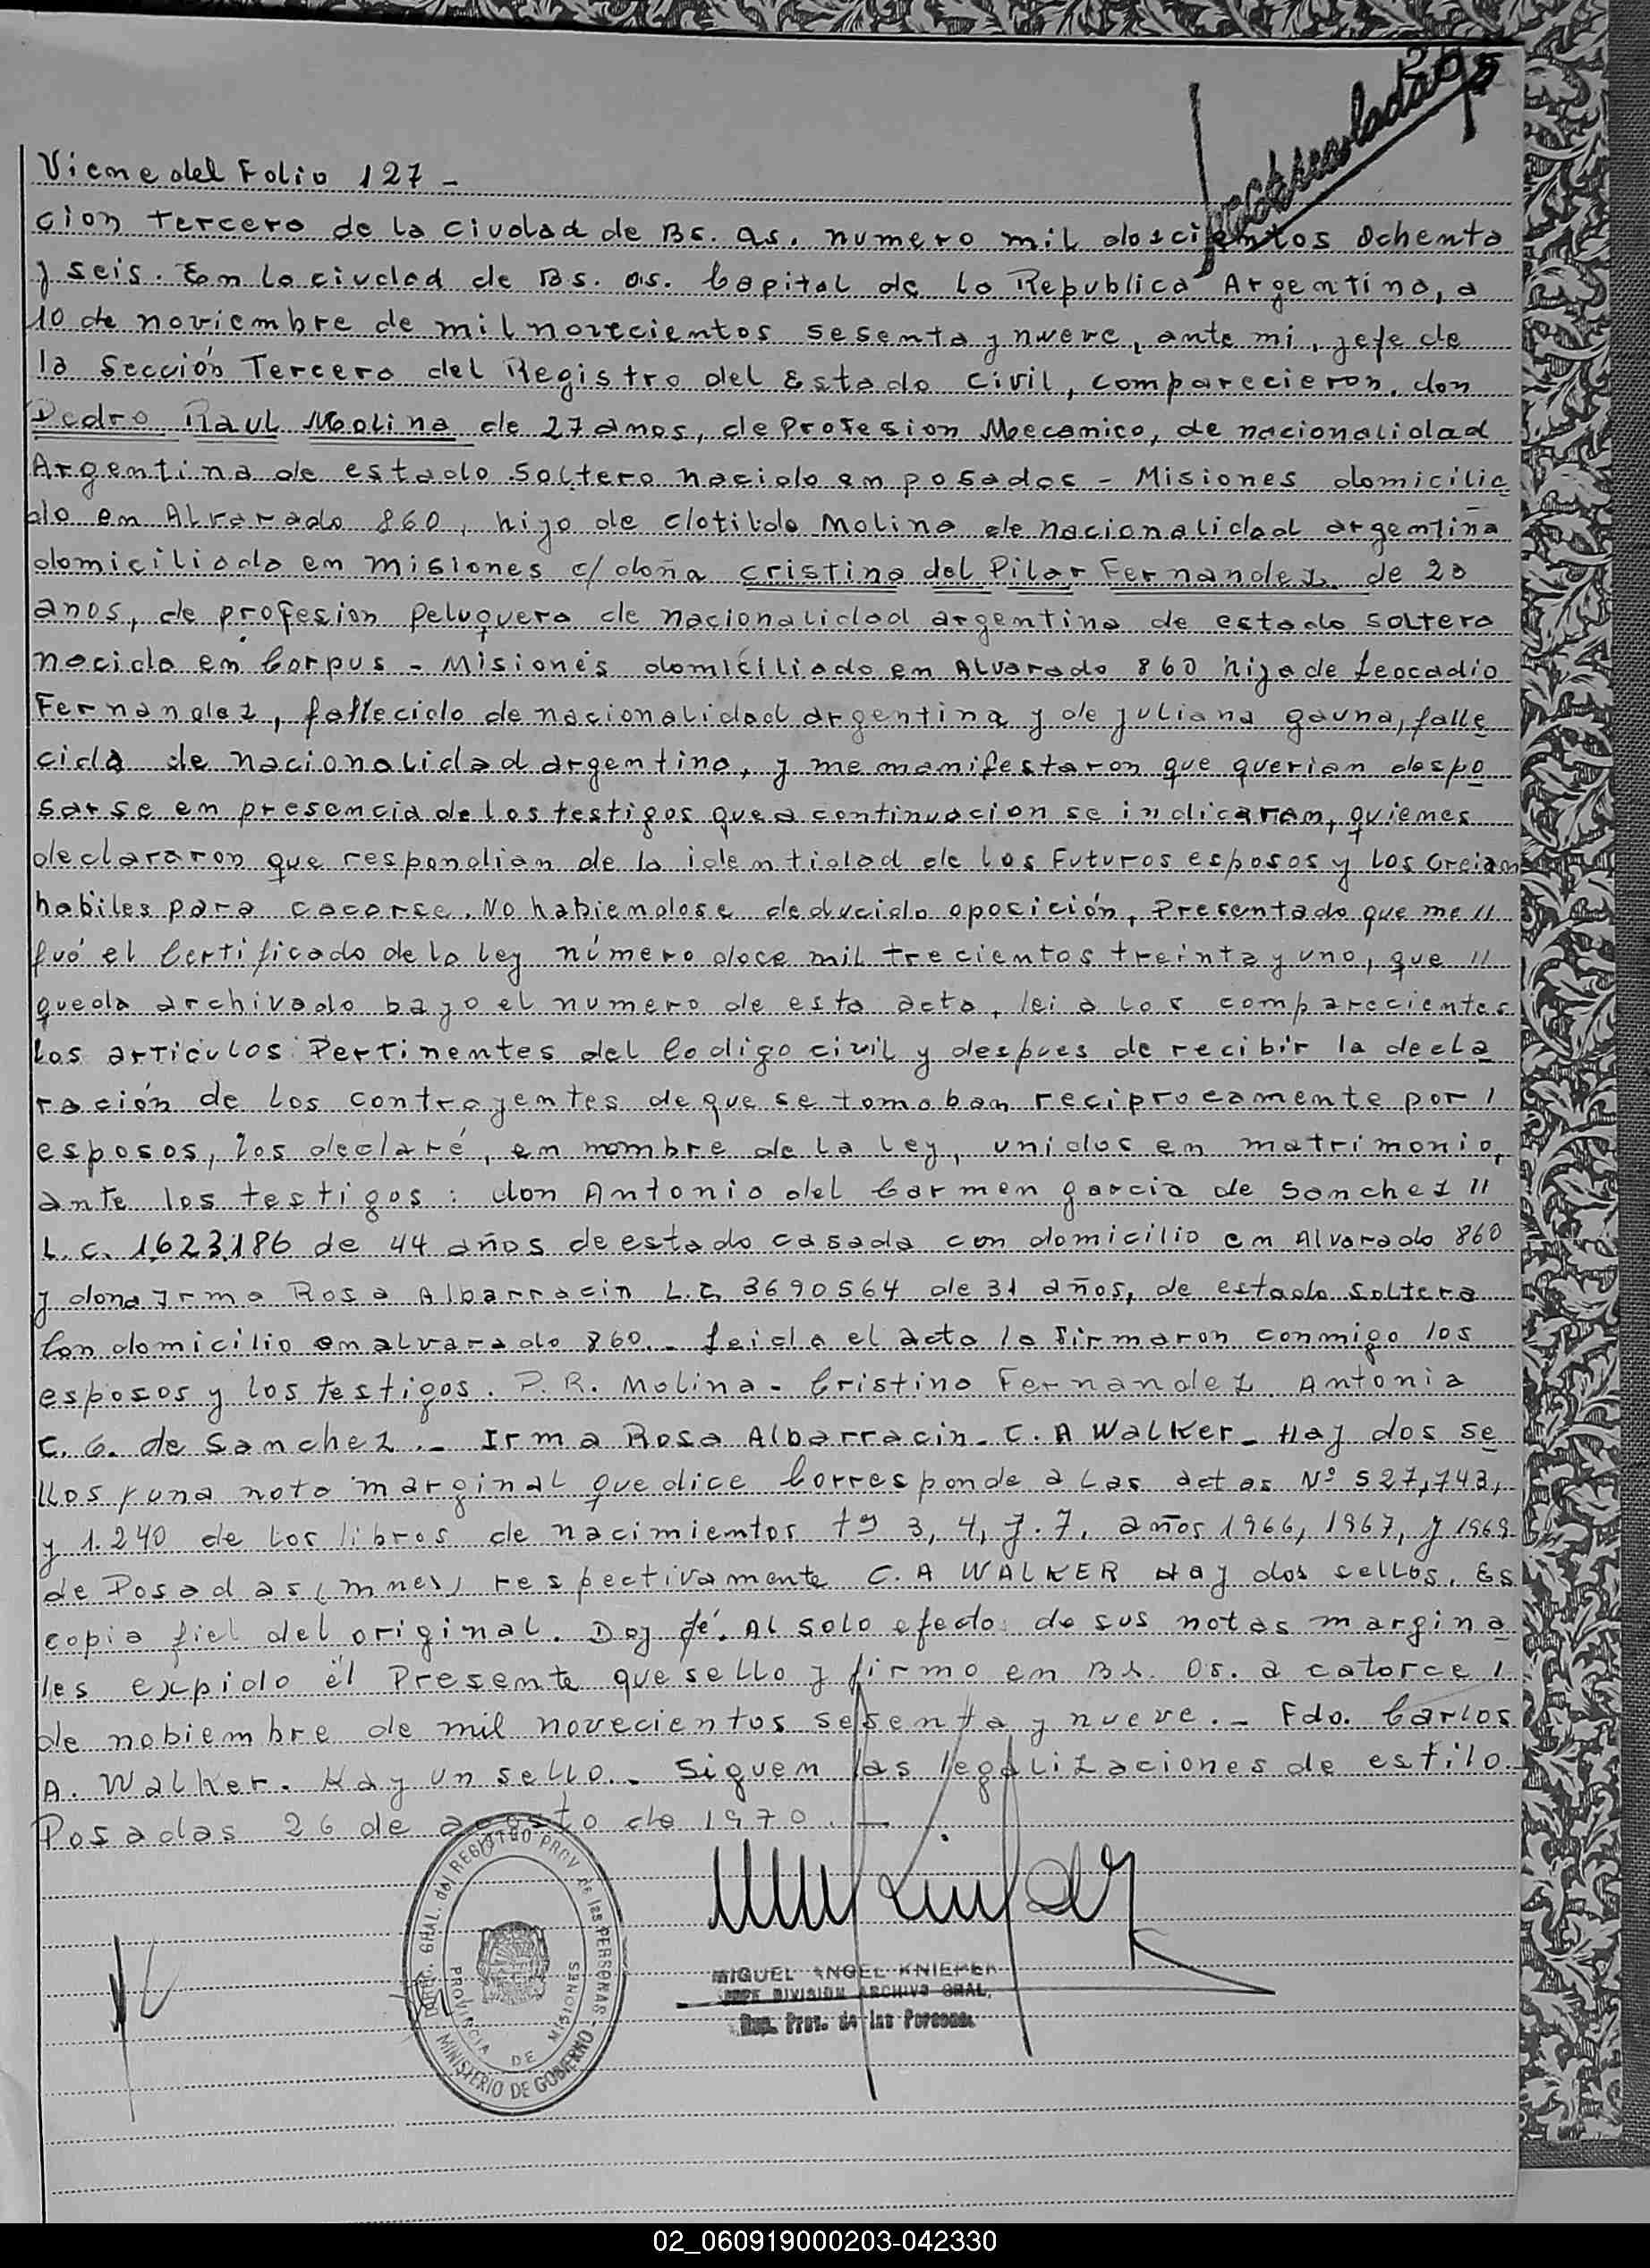 Viene del Folio 127 -
cion tercera de la ciudad de Bs. as. numero mil doscientos ochenta
y seis. En la ciudad de Bs. as. Capital de la Republica Argentina, a
10 de noviembre de mil novecientos sesenta y nueve, ante mi, jefe de
la Sección Tercera del Registro del Estado Civil, comparecieron, don
Pedro Raul Molina de 27 anos, de Profesion Mecanico, de nacionalidad
Argentina de estado soltero nacido en posadas - Misiones domicilia
do en Alvarado 860, hijo de Clotilde Molina de nacionalidad argentina
domiciliada en misiones c/ doña cristina del Pilar Fernandez de 20
anos, de profesion Peluquera de nacionalidad argentina de estado soltera
nacida en Corpus - Misiones domiciliada en Alvarado 860 hija de Leocadio
Fernandez, fallecido de nacionalidad argentina y de juliana gauna, falle
cida de nacionalidad argentina, y me manifestaron que querian despo
sarse en presencia de los testigos que a continuacion se indicaran, quienes
declararon que respondian de la identidad de los Futuros esposos y los creian
habiles para casarse. No habiendose deducido oposición, Presentado que me //
fué el Certificado de la ley número doce mil trecientos treinta y uno, que //
queda archivado bajo el numero de esta acta, lei a los comparecientes
los articulos Pertinentes del Codigo civil y despues de recibir la decla
ración de los contrayentes de que se tomaban reciprocamente por /
esposos, los declaré, en nombre de la Ley, unidos en matrimonio,
ante los testigos: don Antonio del Carmen garcia de Sanchez //
L. C. 1.623.186 de 44 años de estado casada con domicilio en Alvarado 860
y dona Irma Rosa Albarracin L.C. 3690564 de 31 años, de estado soltera
Con domicilio en alvarado 860.- Leida el acta la firmaron conmigo los
esposos y los testigos. P. R. Molina - Cristina Fernandez Antonia
C. G. de Sanchez.- Irma Rosa Albarracin - C. A Walker - Hay dos se
llos y una nota marginal que dice Corresponde a las actas Nº 527, 743,
y 1.240 de los libros de nacimientos 3, 4, y 7, años 1966, 1967, y 1969
de Posadas (mnes) respectivamente C. A WALKER Hay dos sellos. Es
copia fiel del original. Doy fé. Al solo efecto de sus notas margina
les expido el Presente que sello y firmo en Bs. as. a catorce /
de nobiembre de mil novecientos sesenta y nueve.- Fdo. Carlos
A. Walker. Hay un sello.- Siguen las legalizaciones de estilo.
Posadas 26 de agosto de 1970.-
DIREC. GRAL. del REGISTRO PROV. de las PERSONAS
PROVINCIA DE MISIONES
MINISTERIO DE GOBIERNO
MIGUEL ANGEL KNIEPER
JEFE DIVISION ARCHIVO GRAL.
Reg. Prov. de las Personas
02_060919000203-042330